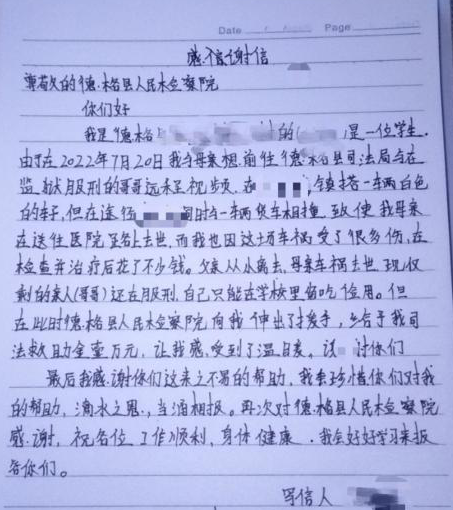 Date Page
感谢信
尊敬的德格县人民检察院
你们好
我是德格 村的 是一位学生.
由于在2022年7月20日我与母亲想前往德格县司法局与在
监狱服刑的哥哥远程视频,在 镇搭一辆白色
的车子,但在途径 同时与一辆货车相撞 致使我母亲
在送往医院 路上去世,而我也因这场车祸受了很多伤,在
检查并治疗后花了不少钱。父亲从小离去,母亲车祸去世 现仅
剩的亲人(哥哥)还在服刑,自己只能在学校里省吃俭用。但
在此时德格县人民检察院向我伸出了援手,给予我司
法救助金壹万元,让我感受到了温暖。 你们
最后我感谢你们这来之不易的帮助,我会珍惜你们对我
的帮助,滴水之恩,当涌相报。再次对德格县人民检察院
感谢,祝各位工作顺利,身体健康.我会好好学习来报
答你们。
写信人